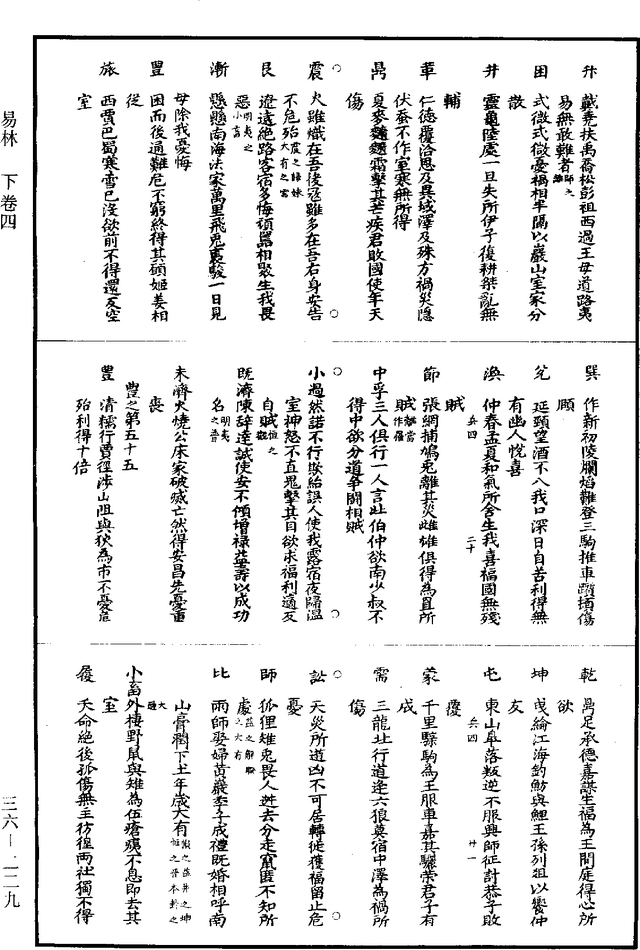 升　戴堯扶禹喬松彭祖西過王母道路夷
易無敢難者師之離
困　式微式微憂禍相半隔以巖山室家分
散
井　靈龜陸處一旦失所伊子復耕桀亂無
輔
革　仁德覆洽恩及異域澤及殊方禍災隱
伏蠶不作室寒無所得
鼎　夏麥麷麷霜擊其芒疾君敗國使年夭
傷
震　火雖熾在吾後寇雖多在吾右身安吉
不危殆震之歸妹大有之需
艮　遼遠絕路客宿多悔頑嚚相聚生我畏
惡明夷之小畜
漸　懸懸南海去家萬里飛兔裊駿一日見
母除我憂悔
豐　困而後通難危不窮終得其願姬姜相
從
旅　西賈巴蜀寒雪已沒欲前不得還反空
室
巽　作新初陵爛焰難登三駒推車躓損傷
頤
兌　延頸望酒不入我口深日自苦利得無
有幽人悅喜
渙　仲春孟夏和氣所舍生我喜福國無殘
賊　兵四　二十
節　張網捕鳩兔離其災雌雄俱得為罝所
賊
中孚三人俱行一人言北伯仲欲南少叔不
得中欲分道爭鬬相賊
小過然諾不行欺紿誤人使我露宿夜歸溫
室神怒不直鬼擊其目欲求福利適反
自賊恒之觀
既濟陳辭達誠使安不傾增祿益壽以成功
名明夷之晉
未濟火燒公床家破滅亡然得安昌先憂重
喪
豐之第五十五
豐　清檽行賈徑涉山阻與狄為市不憂危
殆利得十倍
乾　禹足承德嘉謀生福為王開庭得心所
欲
坤　曳綸江海釣魴與鯉王孫列俎以饗仲
友
屯　東山皐落叛逆不服興師征討恭子敗
覆　兵四　廿一
蒙　千里騄駒為王服車嘉其驪榮君子有
成
需　三龍北行道逢六狼莫宿中澤為禍所
傷
訟　天災所遊凶不可居轉徙獲福留止危
憂
師　狐狸雉兔畏人逃去分走竄匿不知所
處
比　雨師娶婦黃巖季子成禮既婚相呼南
山膏潤下土年歲大有
小畜外棲野鼠與雉為伍瘡痍不息即去其
室
履　夭命絕後孤傷無主彷徨兩社獨不得
易林　下卷四
三六—二二九